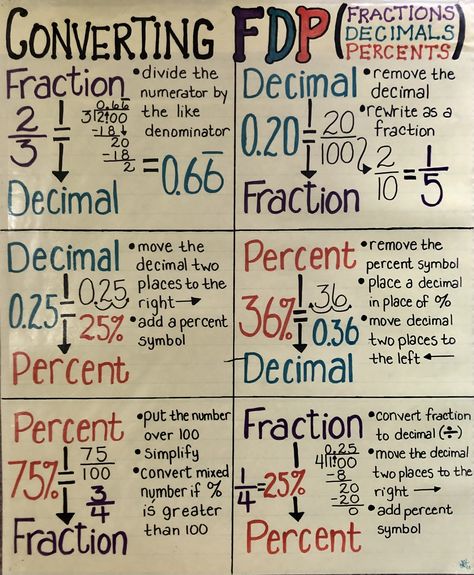 CONVERTING FDP (FRACTIONS
DECIMALS
PERCENTS)
Fraction
• divide the
numerator by
the like
denominator
2/3 =
0.66
3|2.00
-18
20
-18
2
= 0.66̅
Decimal
Decimal
• remove the
decimal
• rewrite as a
fraction
0.20 = 20/100
2/10 = 1/5
Fraction
Decimal
• move the
decimal two
places to the
right →
• add a percent
symbol
0.25 = 0.25
25%
Percent
Percent
• remove the
percent symbol
• place a decimal
in place of %
• move decimal
two places to
the left ←
36% = .36.
0.36
Decimal
Percent
• put the number
over 100
• Simplify
• Convert mixed
number if %
is greater
than 100
75% = 75/100
3/4
Fraction
Fraction
• convert fraction
to decimal (÷)
• move the decimal
two places to the
right →
• add percent
symbol
1/4 = 25%
0.25
4|1.00
-8
20
-20
0
Percent